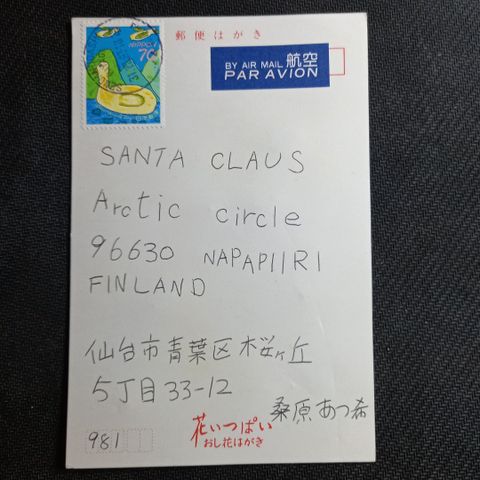 郵便はがき
NIPPON
70
BY AIR MAIL 航空
PAR AVION
SANTA CLAUS
Arctic circle
96630 NAPAPIIRI
FINLAND
仙台市青葉区桜ヶ丘
5丁目33-12
桑原あつ希
花いっぱい
おし花はがき
981